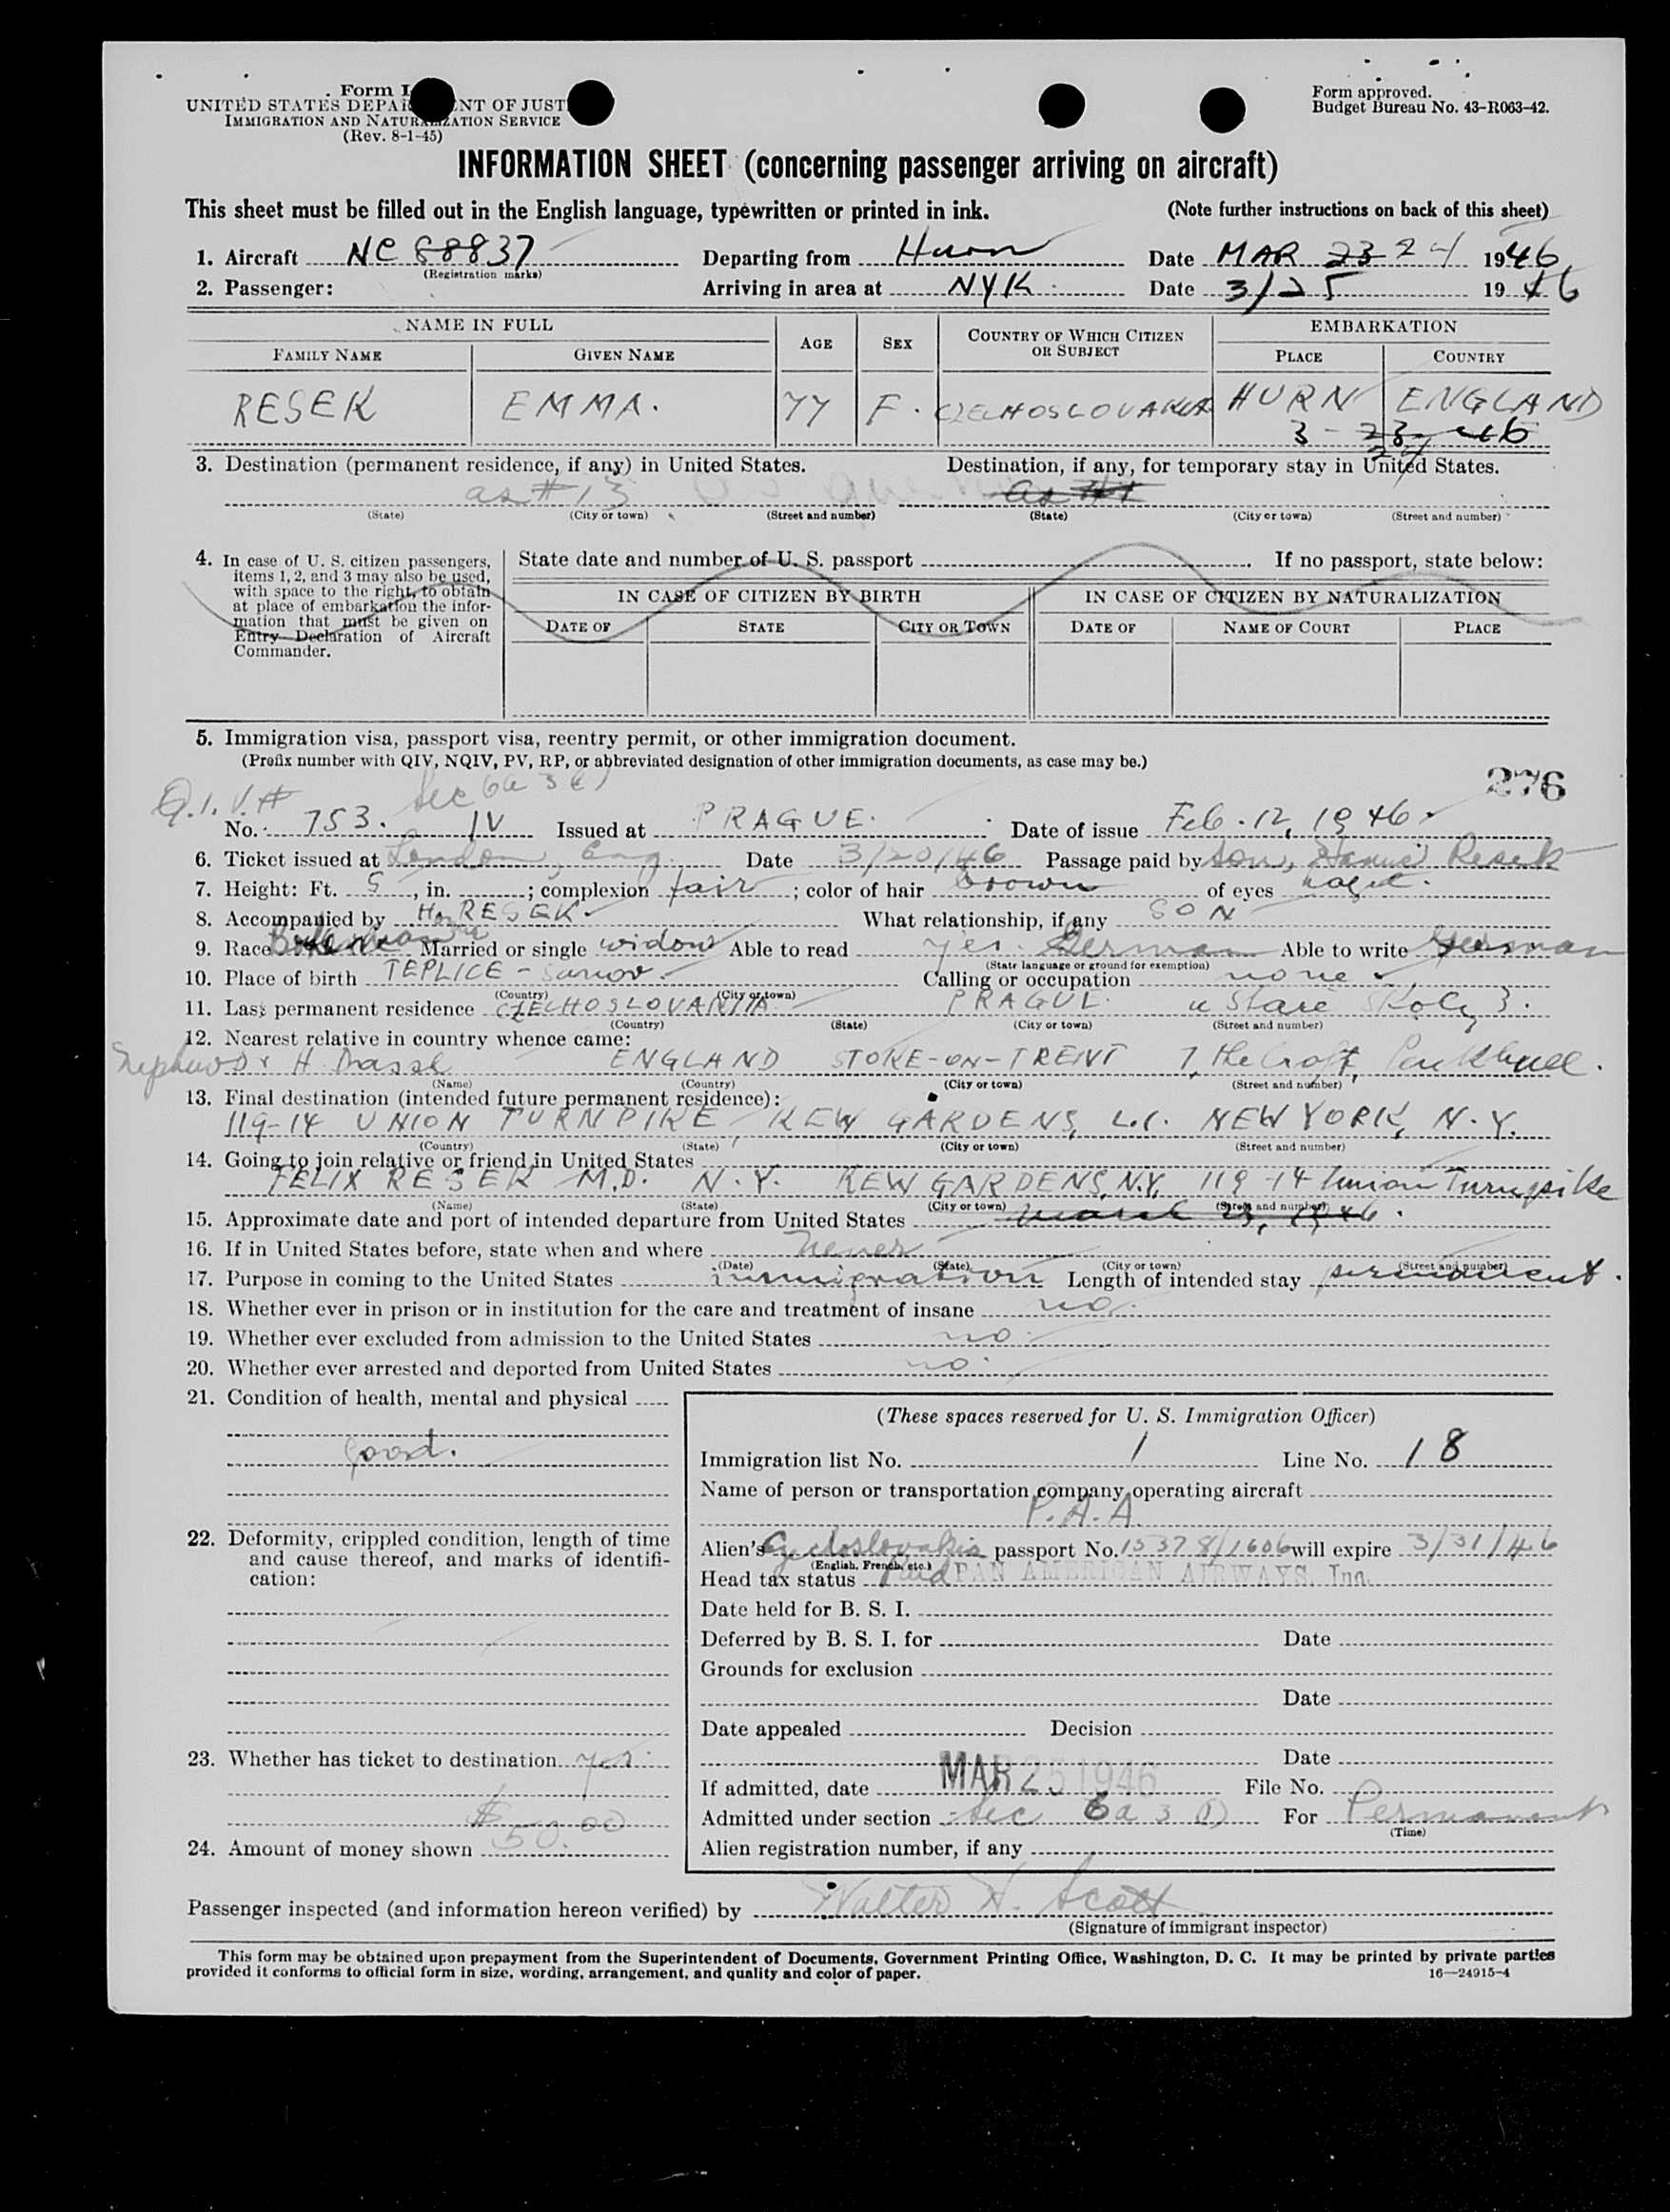 Form I
UNITED STATES DEPAR NT OF JUST
IMMIGRATION AND NATURALIZATION SERVICE
(Rev. 8-1-45)
Form approved.
Budget Bureau No. 43-R063-42.
INFORMATION SHEET (concerning passenger arriving on aircraft)
This sheet must be filled out in the English language, typewritten or printed in ink. (Note further instructions on back of this sheet)
1. Aircraft NC 88837 Departing from Hurn Date MAR 23 24 1946
(Registration marks)
2. Passenger: Arriving in area at NYK Date 3/25 1946
NAME IN FULL AGE SEX COUNTRY OF WHICH CITIZEN OR SUBJECT EMBARKATION
FAMILY NAME GIVEN NAME PLACE COUNTRY
RESEK EMMA. 77 F. CZECHOSLOVAKIA HURN ENGLAND
3 - 23 46
24
3. Destination (permanent residence, if any) in United States. Destination, if any, for temporary stay in United States.
as # 13 as #1
(State) (City or town) (Street and number) (State) (City or town) (Street and number)
4. In case of U. S. citizen passengers, items 1, 2, and 3 may also be used, with space to the right, to obtain at place of embarkation the information that must be given on Entry Declaration of Aircraft Commander.
State date and number of U. S. passport . If no passport, state below:
IN CASE OF CITIZEN BY BIRTH IN CASE OF CITIZEN BY NATURALIZATION
DATE OF STATE CITY OR TOWN DATE OF NAME OF COURT PLACE
5. Immigration visa, passport visa, reentry permit, or other immigration document.
(Prefix number with QIV, NQIV, PV, RP, or abbreviated designation of other immigration documents, as case may be.)
276
Q.I.V.# Sec 6a 3
No. 753. IV Issued at PRAGUE. Date of issue Feb. 12, 1946
6. Ticket issued at London, Eng. Date 3/20/46 Passage paid by son, Resek
7. Height: Ft. 5, in. ; complexion fair; color of hair brown of eyes hazel.
8. Accompanied by H. RESEK What relationship, if any SON
9. Race Bohemian Married or single widow Able to read yes. German Able to write German
(State language or ground for exemption)
10. Place of birth TEPLICE - Sanov. Calling or occupation none
(Country) (City or town)
11. Last permanent residence CZECHOSLOVAKIA PRAGUE. u Stare Skoly 3.
(Country) (State) (City or town) (Street and number)
12. Nearest relative in country whence came:
Nephew Dr H. ENGLAND STOKE-ON-TRENT 7, the Croft, Penkhull.
(Name) (Country) (City or town) (Street and number)
13. Final destination (intended future permanent residence):
119-14 UNION TURNPIKE KEW GARDENS, L.I. NEW YORK, N.Y.
(Country) (State) (City or town) (Street and number)
14. Going to join relative or friend in United States
FELIX RESEK M.D. N.Y. KEW GARDENS, N.Y. 119-14 Union Turnpike
(Name) (State) (City or town) (Street and number)
15. Approximate date and port of intended departure from United States March 23, 1946.
16. If in United States before, state when and where never
(Date) (State) (City or town) (Street and number)
17. Purpose in coming to the United States immigration Length of intended stay permanent.
18. Whether ever in prison or in institution for the care and treatment of insane no.
19. Whether ever excluded from admission to the United States no.
20. Whether ever arrested and deported from United States no.
21. Condition of health, mental and physical
good.
22. Deformity, crippled condition, length of time and cause thereof, and marks of identification:
23. Whether has ticket to destination yes.
$50.00
24. Amount of money shown
(These spaces reserved for U. S. Immigration Officer)
Immigration list No. 1 Line No. 18
Name of person or transportation company operating aircraft
P.A.A.
Alien's passport No. 15378/1606 will expire 3/31/46
(English, French, etc.)
Head tax status Paid PAN AMERICAN AIRWAYS, Inc.
Date held for B. S. I.
Deferred by B. S. I. for Date
Grounds for exclusion
Date
Date appealed Decision
Date
If admitted, date MAR 25 1946 File No.
Admitted under section Sec 6a 3 For Permanent
(Time)
Alien registration number, if any
Passenger inspected (and information hereon verified) by Walter H. Scott
(Signature of immigrant inspector)
This form may be obtained upon prepayment from the Superintendent of Documents, Government Printing Office, Washington, D. C. It may be printed by private parties
provided it conforms to official form in size, wording, arrangement, and quality and color of paper. 16—24915-4